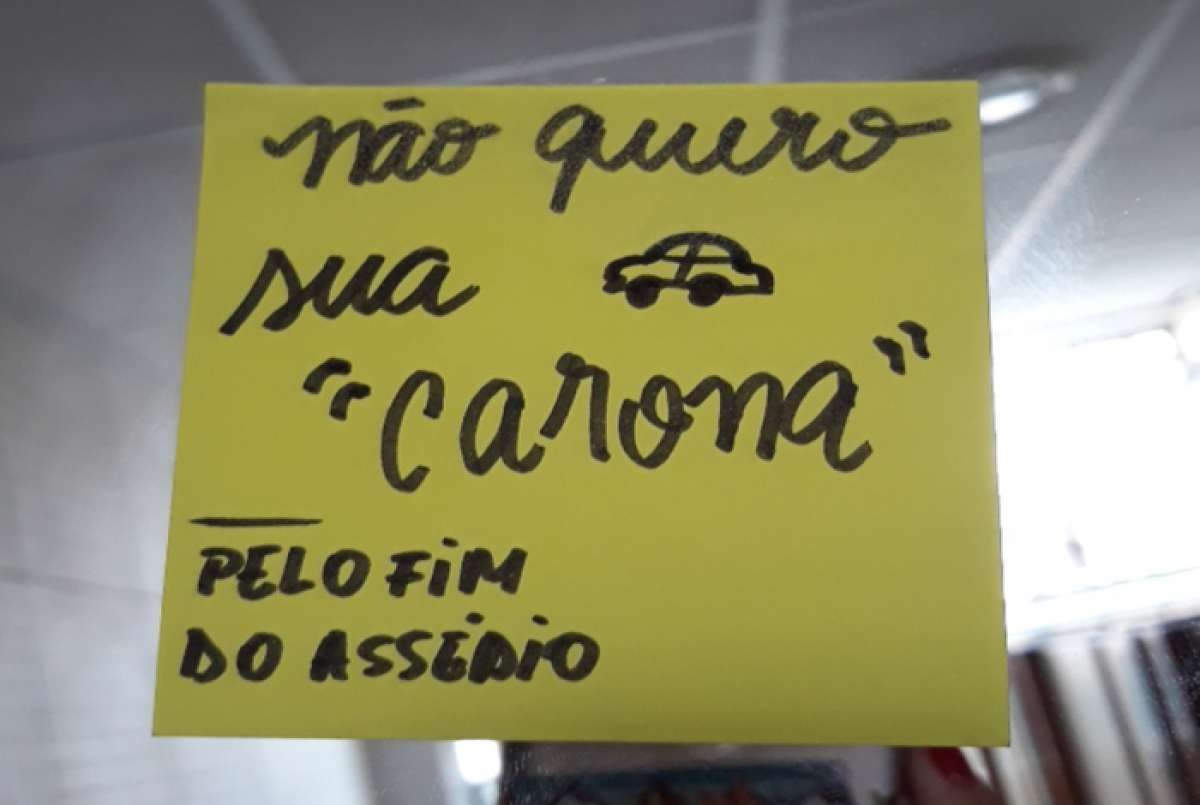 não quero
sua
"carona"
PELO FIM
DO ASSÉDIO